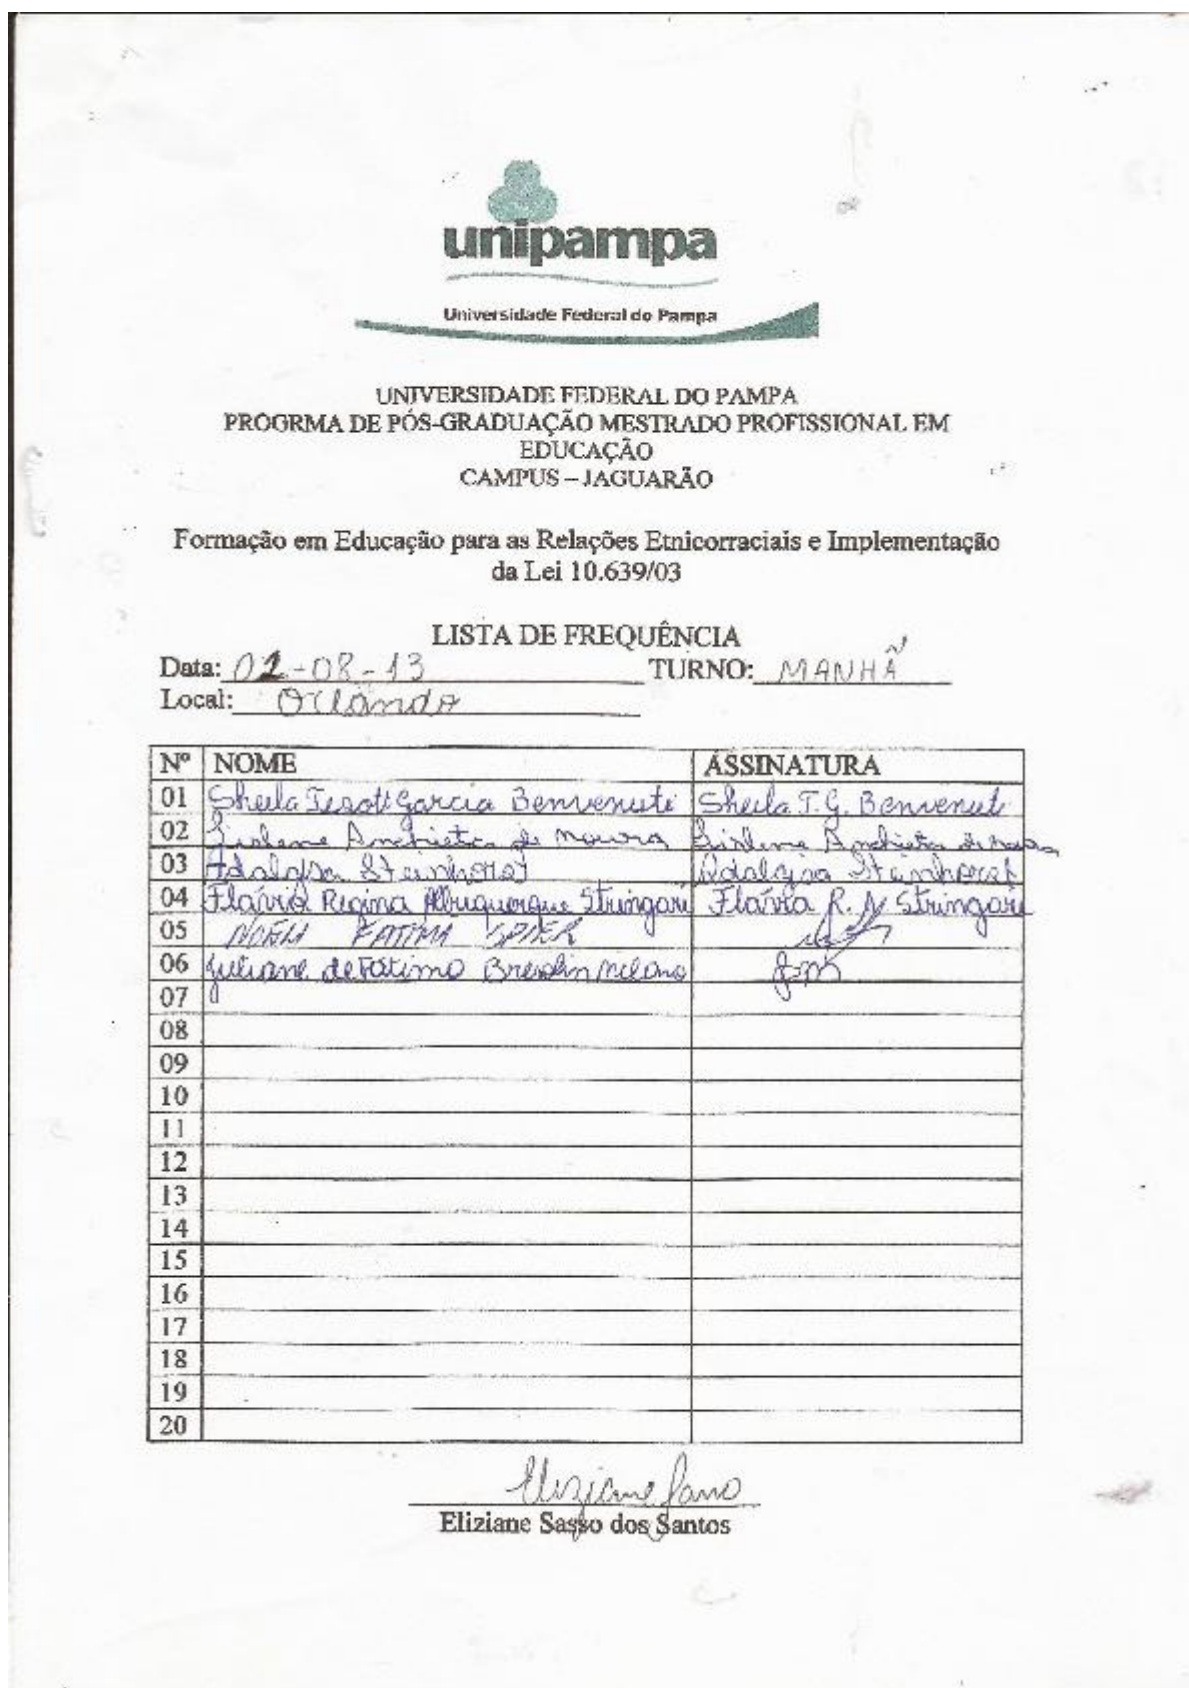 unipampa
Universidade Federal do Pampa
UNIVERSIDADE FEDERAL DO PAMPA
PROGRMA DE PÓS-GRADUAÇÃO MESTRADO PROFISSIONAL EM
EDUCAÇÃO
CAMPUS – JAGUARÃO
Formação em Educação para as Relações Etnicorraciais e Implementação
da Lei 10.639/03
LISTA DE FREQUÊNCIA
Data: 02-08-13 TURNO: MANHÃ
Local: Orlando
Nº NOME ASSINATURA
01 Sheila Tesott Garcia Benvenuti Sheila T. G. Benvenuti
02 Anchieta de Moura Anchieta de
03 Adalgisa Steinhorst Adalgisa Steinhorst
04 Flávia Regina Albuquerque Stringari Flávia R. A Stringari
05 FATIMA SPIER
06 Juliane de Fátima Milano
07
08
09
10
11
12
13
14
15
16
17
18
19
20
Eliziane Sasso
Eliziane Sasso dos Santos